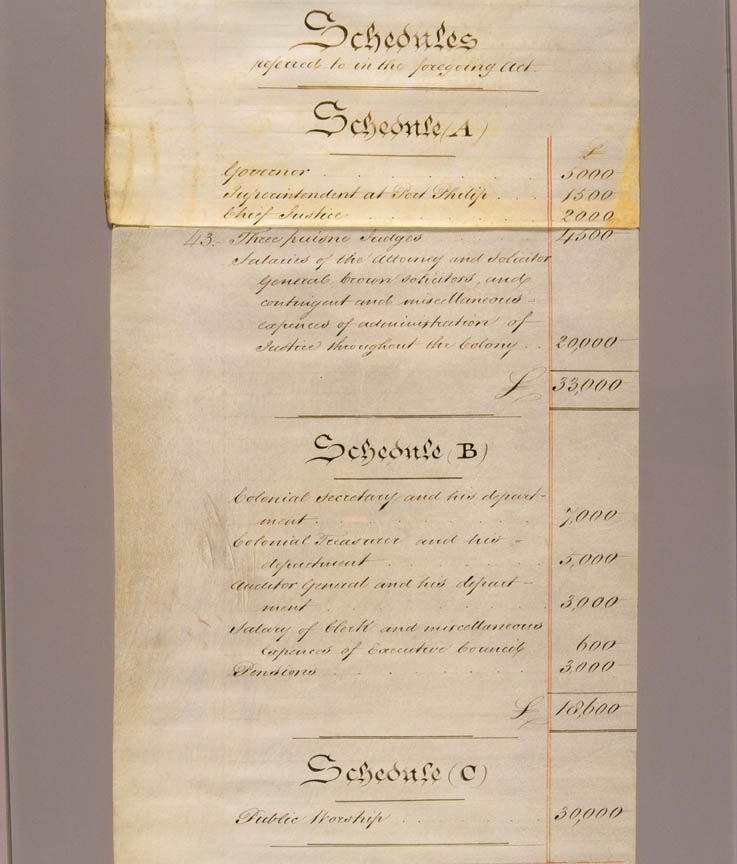 Schedules
referred to in the foregoing Act.
Schedule (A)
£
Governor . . . . . . 5000
Superintendent at Port Philip . . 1500
Chief Justice . . . . . 2000
43. Three puisne Judges . . . 4500
Salaries of the Attorney and Solicitor
General, Crown Solicitors, and
contingent and miscellaneous
expences of administration of
Justice throughout the Colony . . 20,000
£ 33,000
Schedule (B)
Colonial Secretary and his depart-
ment . . . . . . 7,000
Colonial Treasurer and his
department . . . . . 5,000
Auditor General and his depart-
ment . . . . . . 3,000
Salary of Clerk and miscellaneous
expences of Executive Council 600
Pensions . . . . . . 3,000
£ 18,600
Schedule (C)
Public Worship . . . . 30,000